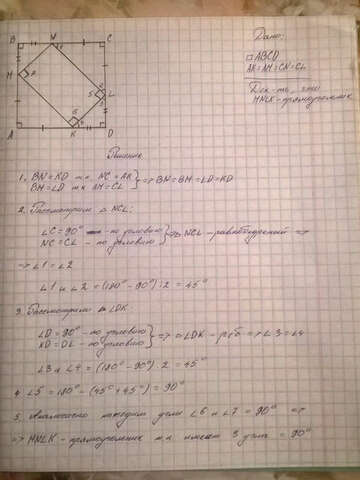 Дано:
□ABCD
AK=AM=CN=CL
Док-ть, что
MNLK-прямоугольник
B N C
M
L
A K D
Решение
1. BN=KD т.к. NC=AK
BM=LD т.к. AM=CL } => BN=BM=LD=KD
2. Рассмотрим △ NCL:
∠C=90° - по условию
NC=CL - по условию } => NCL-равнобедренный =>
=> ∠1=∠2
∠1 и ∠2 = (180°-90°):2=45°
3. Рассмотрим △ LDK:
∠D=90° - по условию
KD=DL - по условию } => △LDK - р/б => ∠3=∠4
∠3 и ∠4 = (180°-90°):2=45°
4. ∠5=180°-(45°+45°)=90°
5. Аналогично находим углы ∠6 и ∠7 = 90° =>
=> MNLK-прямоугольник т.к имеет 3 угла = 90°